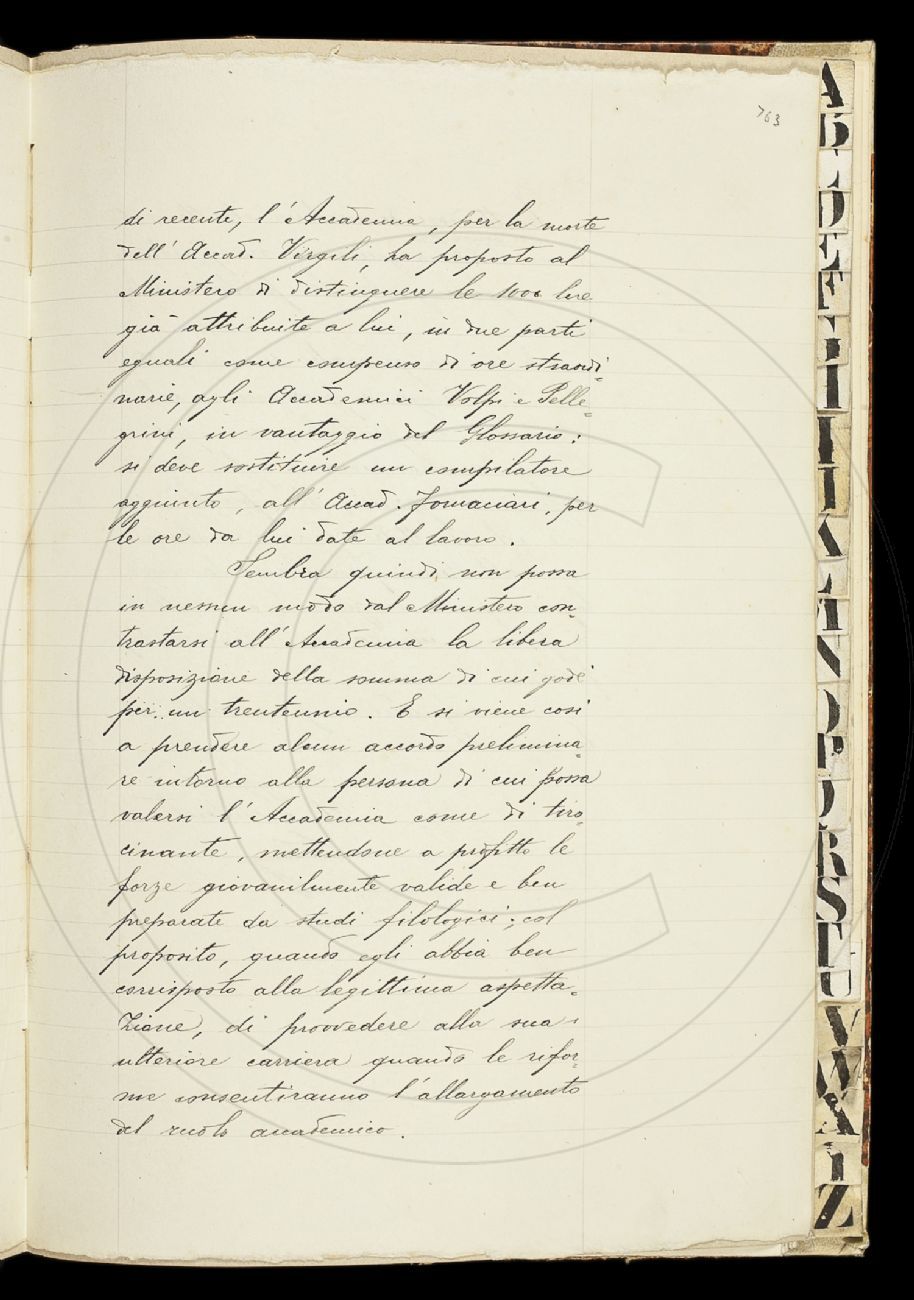 763
di recente, l'Accademia, per la morte
dell'Accad. Virgili, ha proposto al
Ministero di distinguere le 1000 lire
già attribuite a lui, in due parti
eguali come compenso di ore straordi-
narie, agli Accademici Volpi e Pelle-
grini, in vantaggio del Glossario:
si deve sostituire un compilatore
aggiunto, all'Accad. Fornaciari, per
le ore da lui date al lavoro.
Sembra quindi non possa
in nessun modo dal Ministero con-
trastarsi all'Accademia la libera
disposizione della somma di cui gode
per un trentennio. E si viene così
a prendere alcun accordo prelimina-
re intorno alla persona di cui possa
valersi l'Accademia come di tiro-
cinante, mettendone a profitto le
forze giovanilmente valide e ben
preparate da studi filologici; col
proposito, quando egli abbia ben
corrisposto alla legittima aspetta-
zione, di provvedere alla sua
ulteriore carriera quando le rifor-
me consentiranno l'allargamento
del ruolo accademico.
A
B
D
E
F
I
L
N
O
P
R
S
T
U
V
W
X
Y
Z